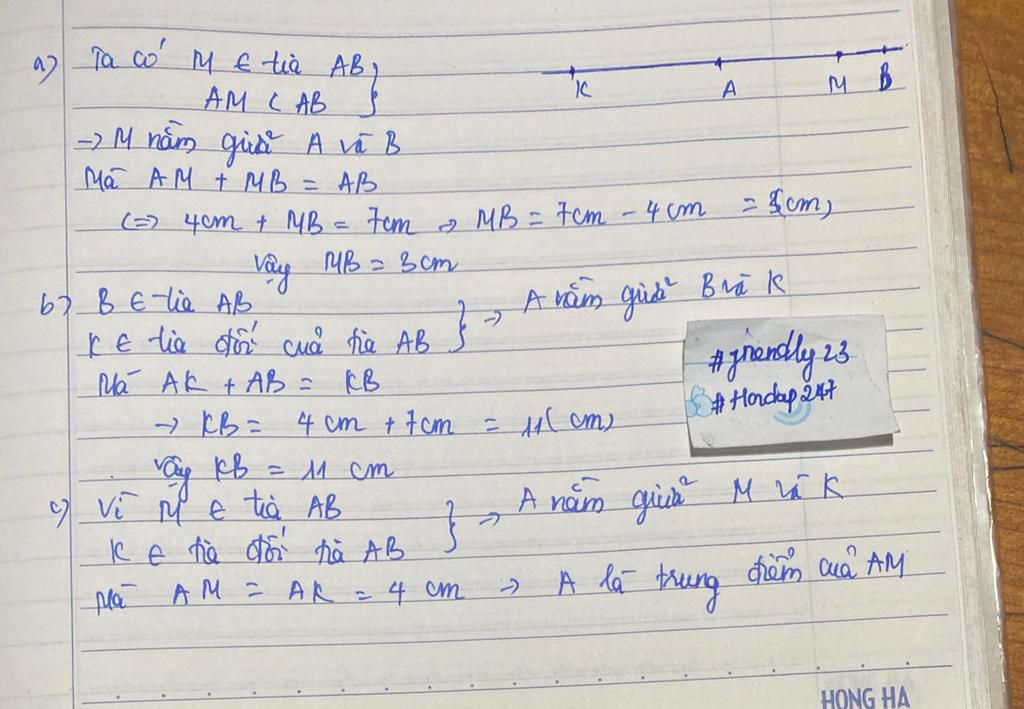 a) Ta có M ∈ tia AB }
AM < AB
K A M B
→ M nằm giữa A và B
Mà AM + MB = AB
(=> 4cm + MB = 7cm → MB = 7cm - 4cm = 3(cm)
Vậy MB = 3cm
b) B ∈ tia AB } → A nằm giữa B và K
K ∈ tia đối của tia AB
Mà AK + AB = KB
→ KB = 4cm + 7cm = 11(cm)
Vậy KB = 11 cm
c) Vì M ∈ tia AB } → A nằm giữa M và K
K ∈ tia đối tia AB
Mà AM = AK = 4 cm → A là trung điểm của AM
#friendly23
#Hoidap247
HONG HA